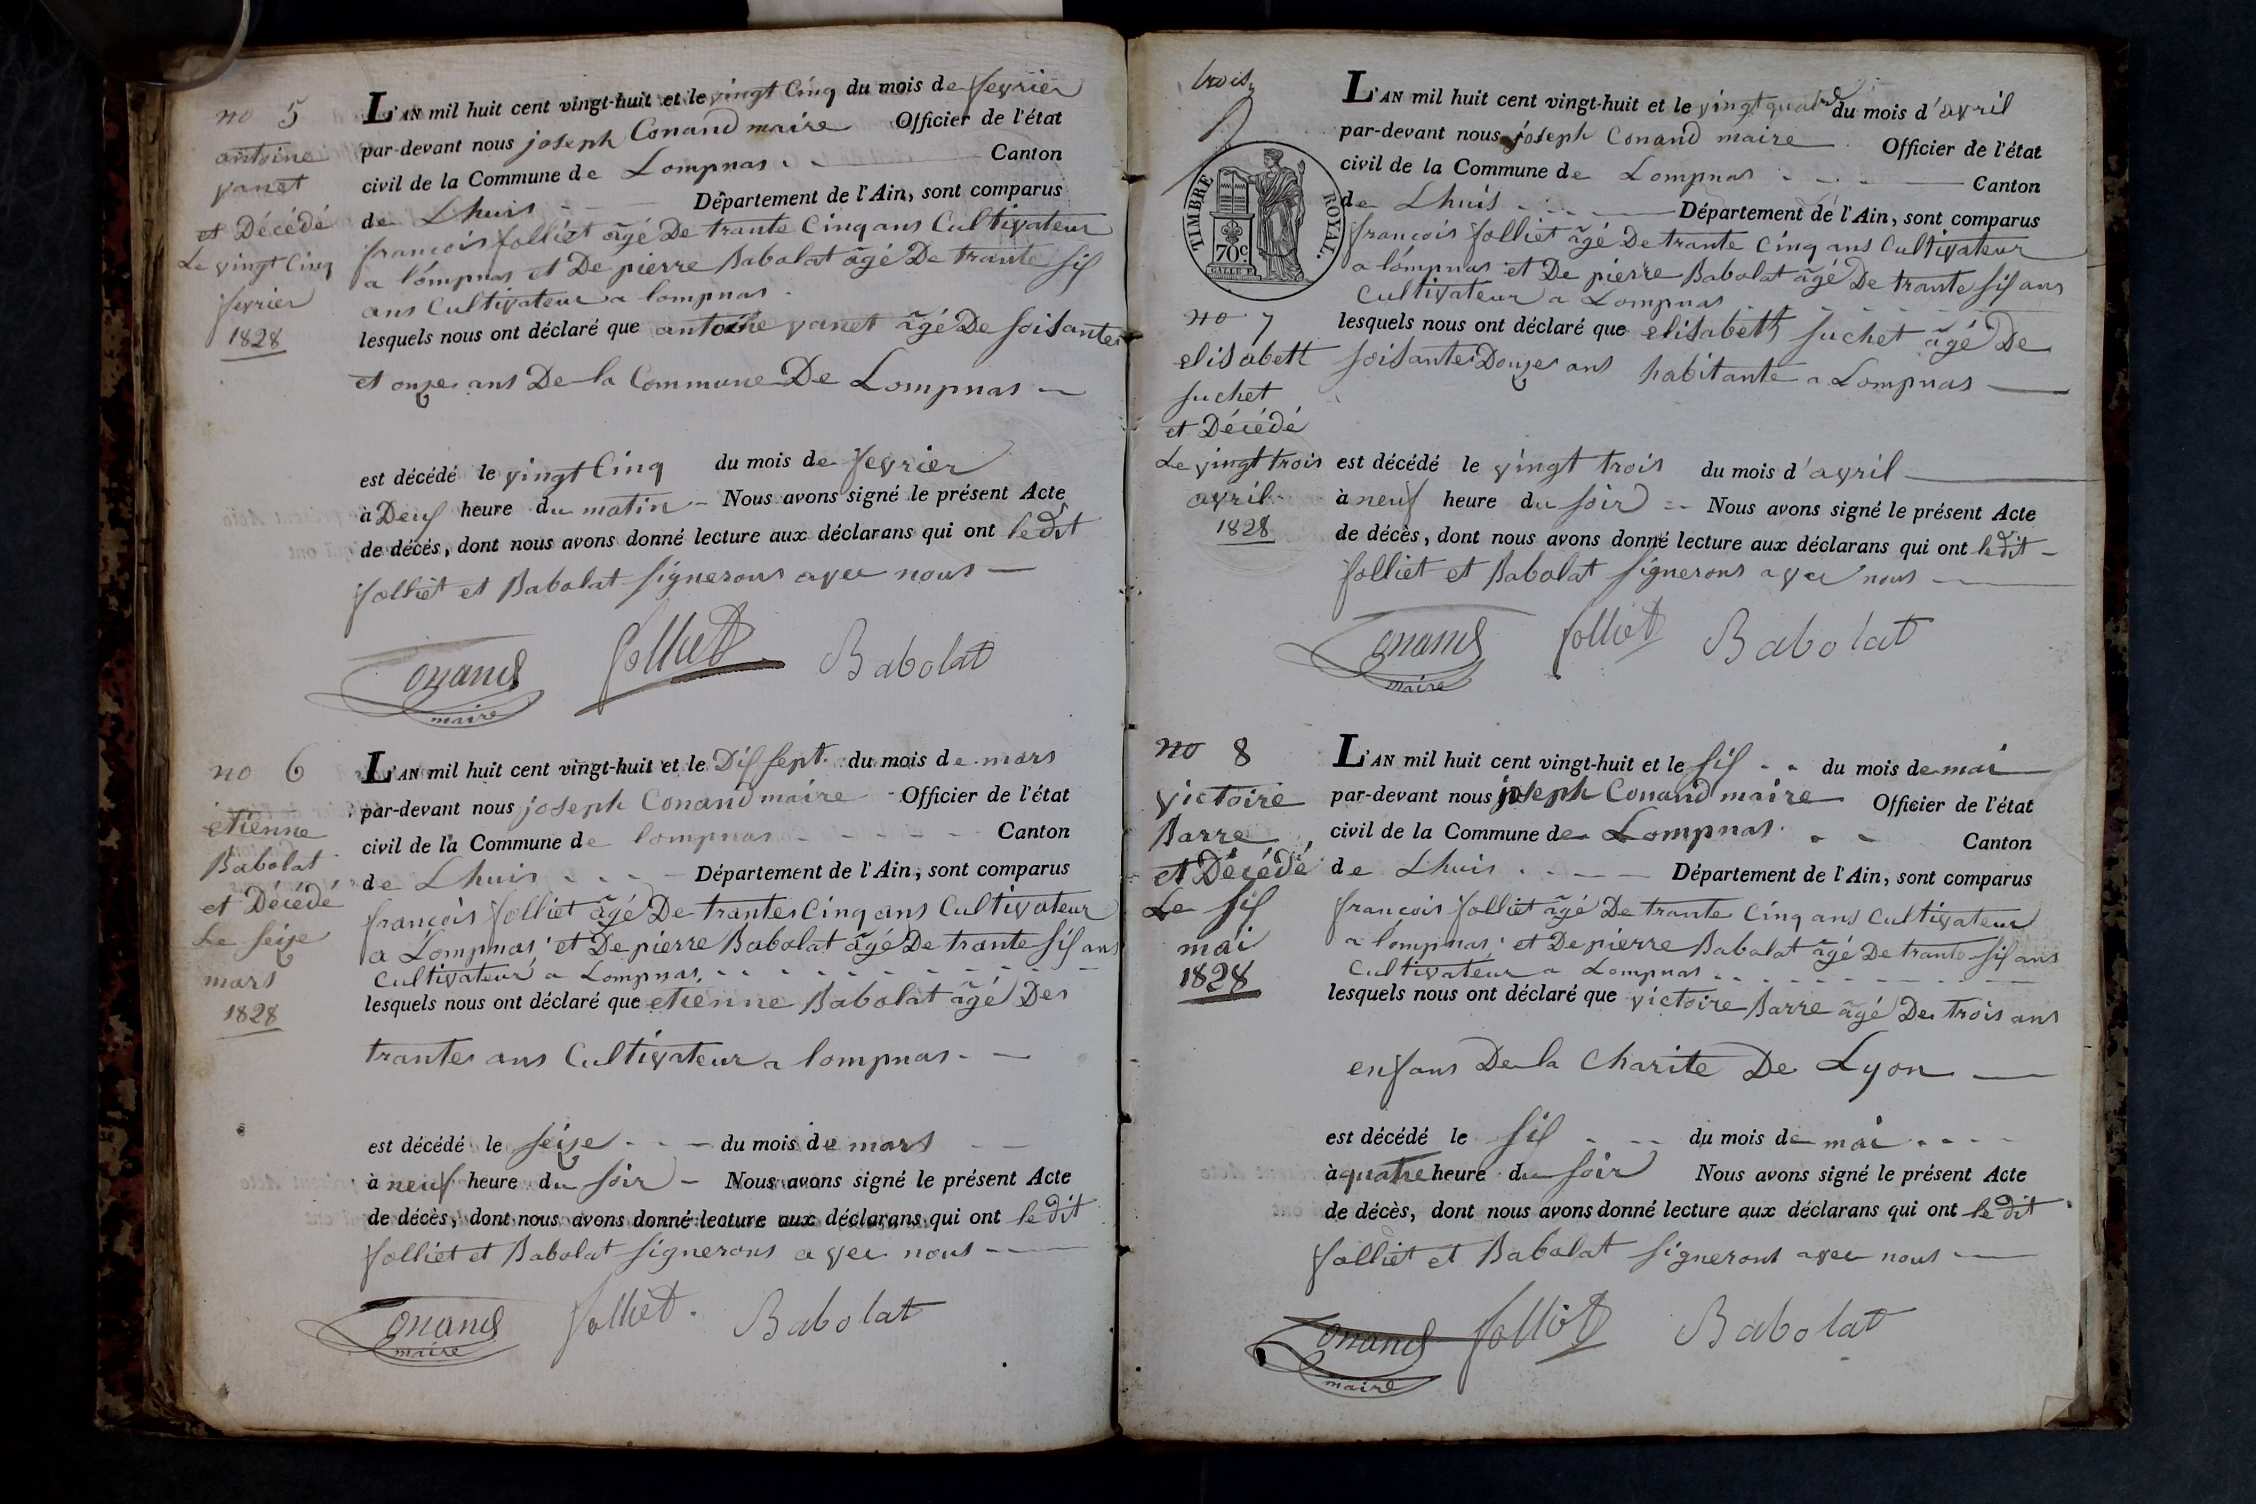 no 5
antoine
vanet
et Décédé
Le vingt Cinq
fevrier
1828
L'AN mil huit cent vingt-huit et le vingt Cinq du mois de fevrier
par-devant nous joseph Conand maire Officier de l'état
civil de la Commune de Lompnas Canton
de Lhuis Département de l'Ain, sont comparus
francois folliet âgé De trante Cinq ans Cultivateur
a lompnas et De pierre Babolat âgé De trante sif
ans Cultivateur a lompnas
lesquels nous ont déclaré que antoine vanet âgé De soisante
et onze ans De la Commune De Lompnas
est décédé le vingt Cinq du mois de fevrier
à Deuf heure du matin Nous avons signé le présent Acte
de décès, dont nous avons donné lecture aux déclarans qui ont le dit
folliet et Babolat signerons avec nous
Conand folliet Babolat
maire
no 6
etienne
Babolat
et Décédé
Le seize
mars
1828
L'AN mil huit cent vingt-huit et le Dif sept du mois de mars
par-devant nous joseph Conand maire Officier de l'état
civil de la Commune de lompnas Canton
de Lhuis Département de l'Ain, sont comparus
francois folliet âgé De trante Cinq ans Cultivateur
a Lompnas et De pierre Babolat âgé De trante sif ans
Cultivateur a Lompnas
lesquels nous ont déclaré que etienne Babolat âgé De
trante ans Cultivateur a lompnas
est décédé le seize du mois de mars
à neuf heure du soir Nous avons signé le présent Acte
de décès, dont nous avons donné lecture aux déclarans qui ont le dit
folliet et Babolat signerons avec nous
Conand folliet Babolat
maire
trois
TIMBRE ROYAL.
70c.
L'AN mil huit cent vingt-huit et le vingt quatre du mois d'avril
par-devant nous joseph Conand maire Officier de l'état
civil de la Commune de Lompnas Canton
de Lhuis Département de l'Ain, sont comparus
francois folliet âgé De trante Cinq ans Cultivateur
a lompnas et De pierre Babolat âgé De trante sif ans
Cultivateur a Lompnas
no 7
elisabett
suchet
et Décédé
Le vingt trois
avril
1828
lesquels nous ont déclaré que elisabett suchet âgé De
soisante Douze ans habitante a Lompnas
est décédé le vingt trois du mois d'avril
à neuf heure du soir Nous avons signé le présent Acte
de décès, dont nous avons donné lecture aux déclarans qui ont le dit
folliet et Babolat signerons avec nous
Conand folliet Babolat
maire
no 8
victoire
Barre
et Décédé
Le sif
mai
1828
L'AN mil huit cent vingt-huit et le sif du mois de mai
par-devant nous joseph Conand maire Officier de l'état
civil de la Commune de Lompnas Canton
de Lhuis Département de l'Ain, sont comparus
francois folliet âgé De trante Cinq ans Cultivateur
a lompnas et De pierre Babolat âgé De trante sif ans
Cultivateur a Lompnas
lesquels nous ont déclaré que victoire Barre âgé De trois ans
enfans De la Charite De Lyon
est décédé le sif du mois de mai
à quatre heure du soir Nous avons signé le présent Acte
de décès, dont nous avons donné lecture aux déclarans qui ont le dit
folliet et Babolat signerons avec nous
Conand folliet Babolat
maire